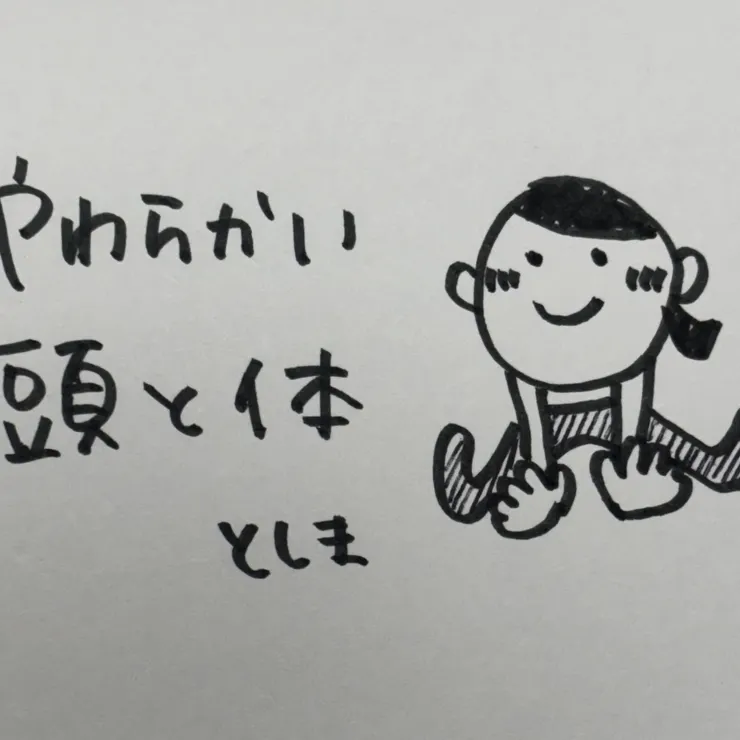 やわらかい
頭と体
としま